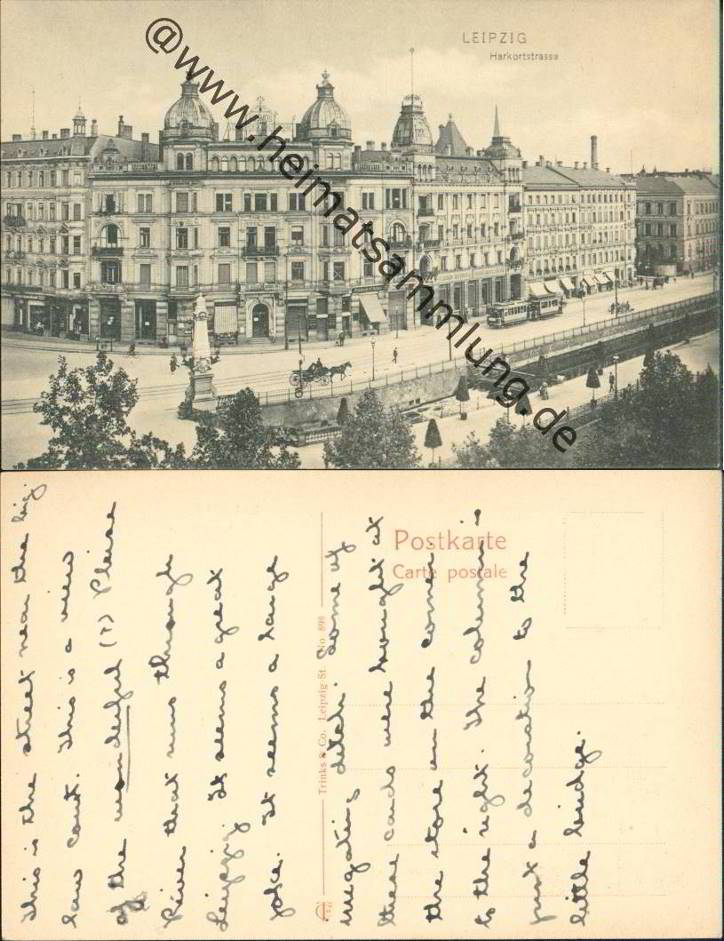 LEIPZIG
Harkortstrasse
@www.heimatsammlung.de
Postkarte
Carte postale
Trinks & Co. Leipzig-St. No. 898
This is the street near the big
law court. This is a view
of the wonderful (?) Pleise
River that runs through
Leipzig. It seems a great
joke. It seems a large
irrigating ditch. Some of
these cards were bought at
the store on the corner
to the right. The column is
just a decoration to the
little bridge.